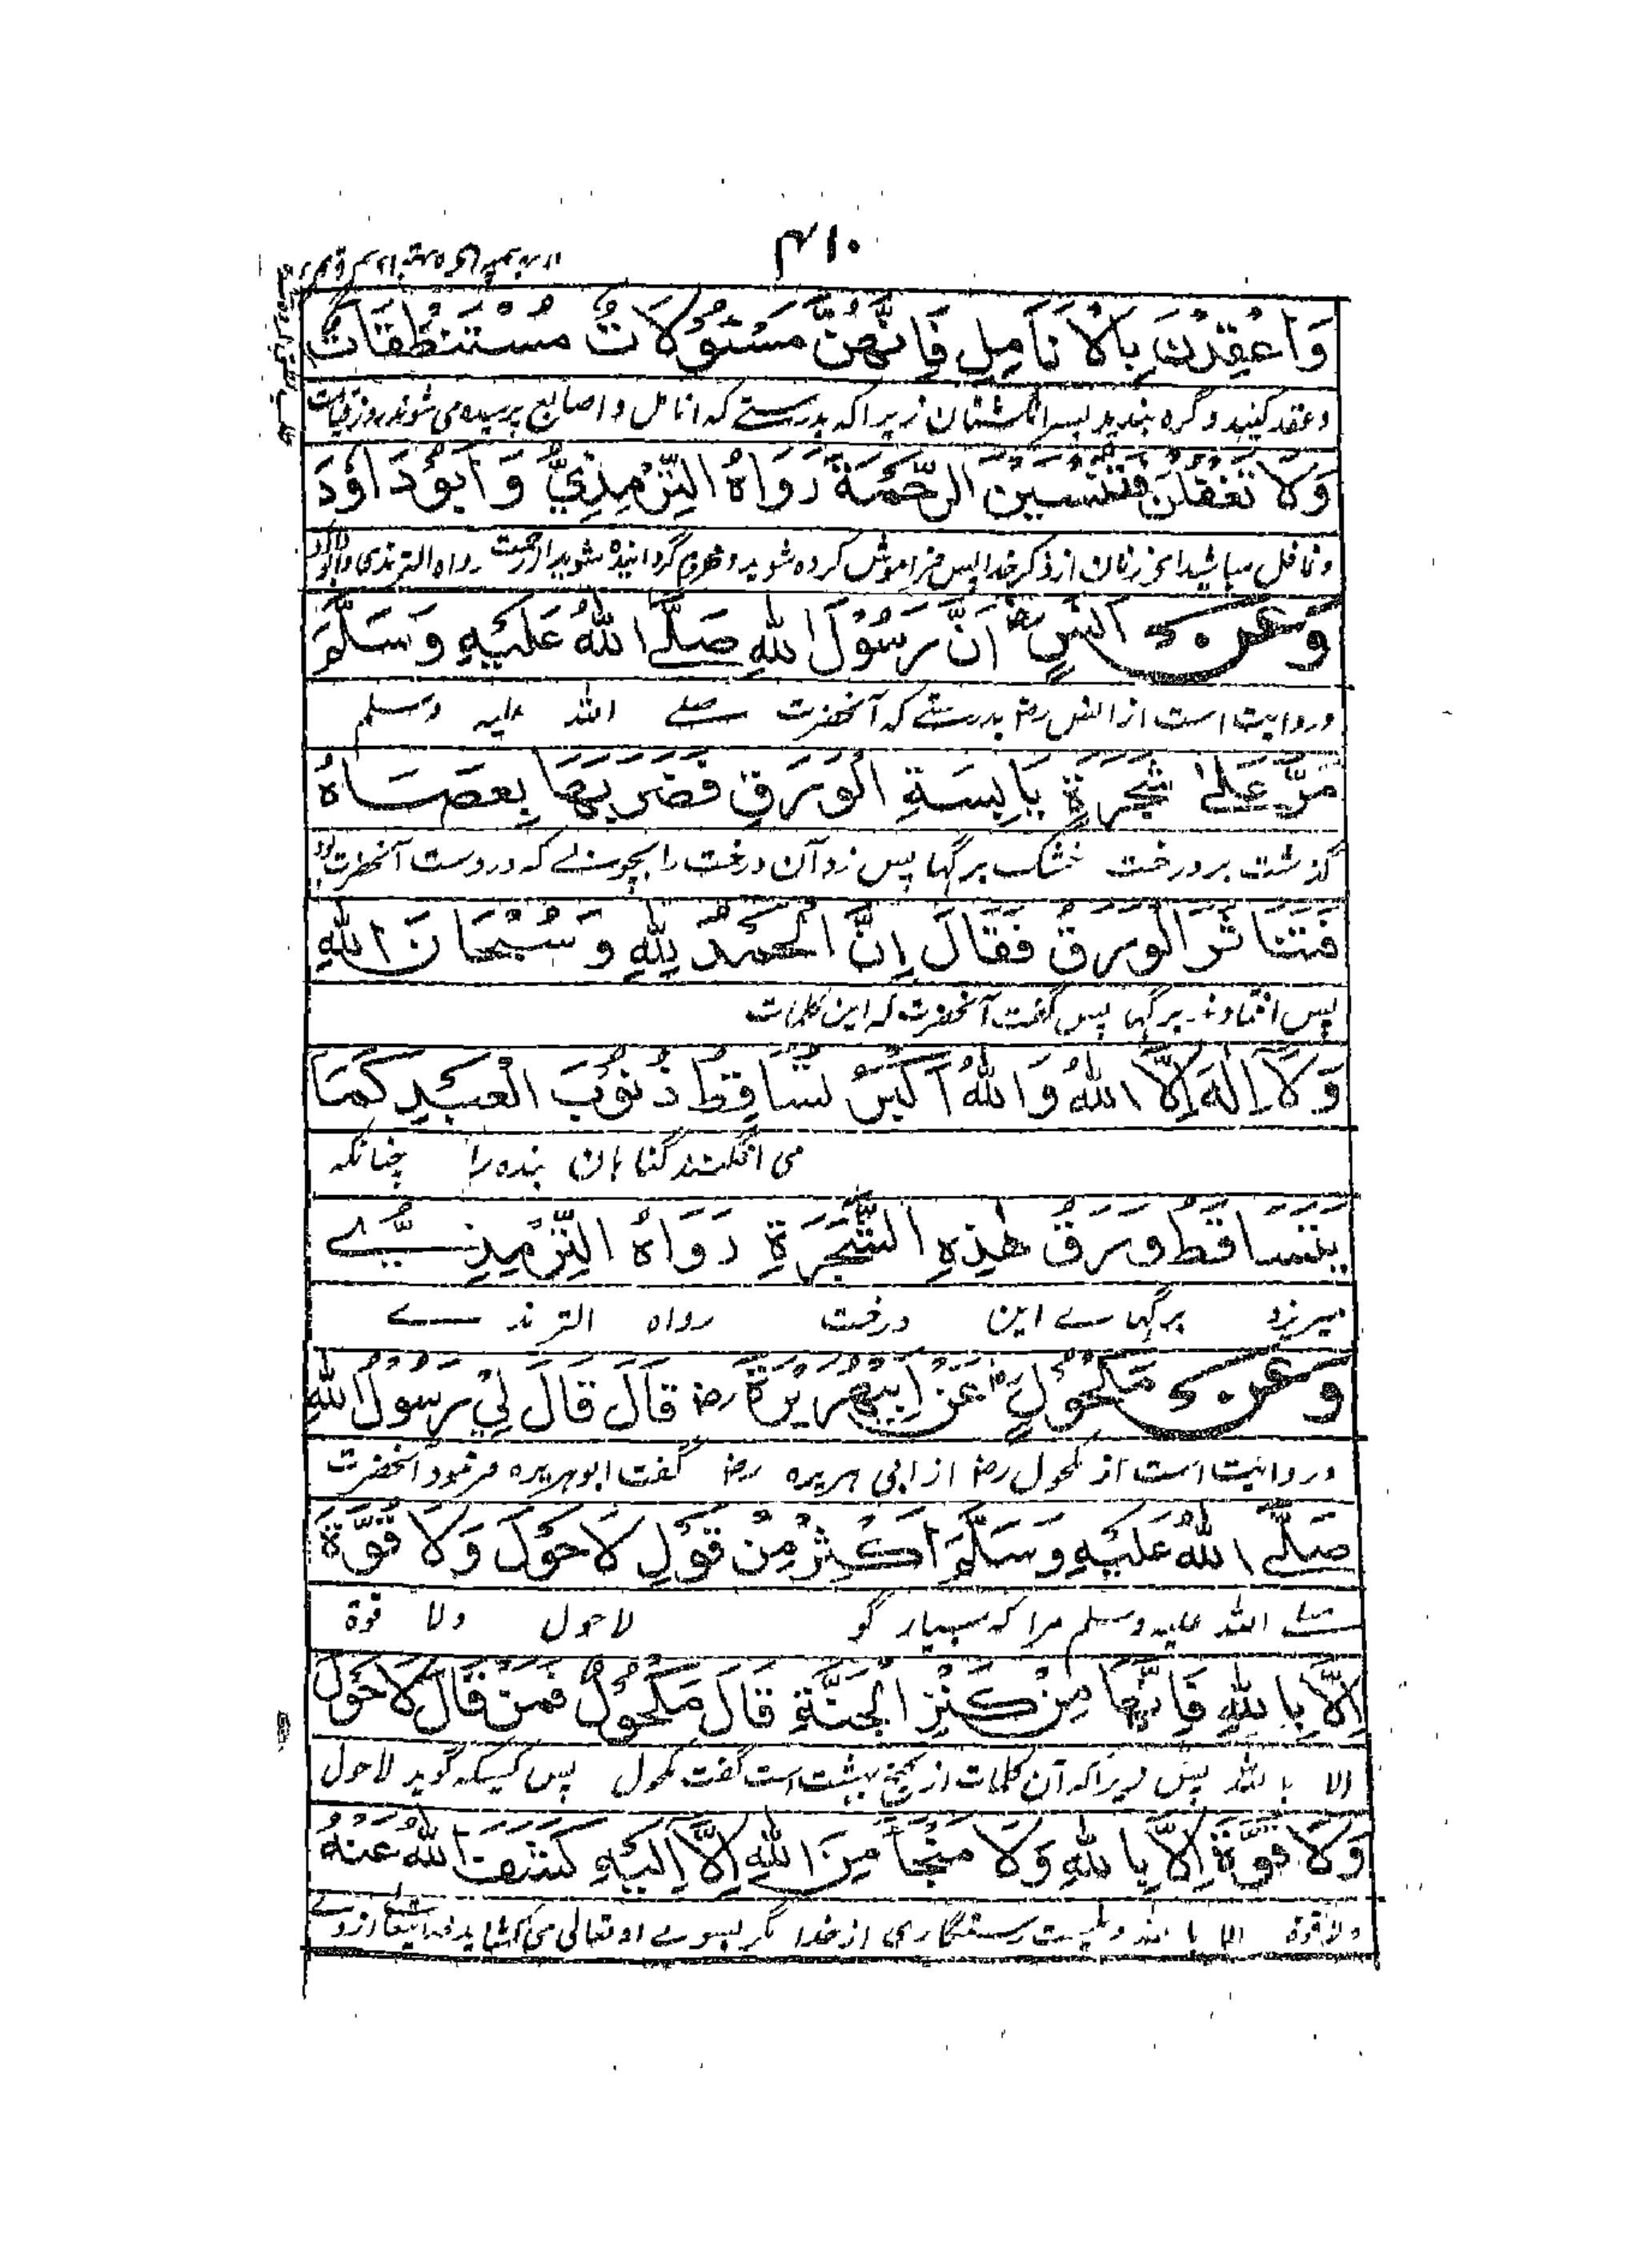 ۴۱۰
وَاعْقِدْنَ بِالْاَنَامِلِ فَاِنَّهُنَّ مَسْئُوْلَاتٌ مُسْتَنْطَقَاتٌ
وعقد کنید و گره بندید بسر انگشتان زیرا که بدرستے که انامل و اصابع پرسیده می شوند روز قیامت
وَلَا تَغْفُلْنَ فَتُنْسَيْنَ الرَّحْمَةَ رَوَاهُ التِّرْمِذِيُّ وَاَبُوْدَاوٗدَ
وغافل مباشید اے زنان از ذکر خدا پس فراموش کرده شوید و محروم گردانیده شوید از رحمت رواه الترمذی وابو داود
وَعَنْ اَنَسٍ رض اَنَّ رَسُوْلَ اللهِ صَلَّے اللهُ عَلَيْهِ وَسَلَّمَ
وروایت است از انس رض بدرستے که آنحضرت صلے الله علیه وسلم
مَرَّ عَلٰى شَجَرَةٍ يَابِسَةِ الْوَرَقِ فَضَرَبَهَا بِعَصَاهُ
گذشت بر درخت خشک برگها پس زد آن درخت را بچوبے که در دست آنحضرت بود
فَتَنَاثَرَ الْوَرَقُ فَقَالَ اِنَّ الْحَمْدُ لِلّٰهِ وَسُبْحَانَ اللهِ
پس افتادند برگها پس گفت آنحضرت که این کلمات
وَلَا اِلٰهَ اِلَّا اللهُ وَاللهُ اَكْبَرُ تُسَاقِطُ ذُنُوْبَ الْعَبْدِ كَمَا
می افگنند گناهان بنده را چنانکه
يَتَسَاقَطُ وَرَقُ هٰذِهِ الشَّجَرَةِ رَوَاهُ التِّرْمِذِيُّ
میریزد برگهاے این درخت رواه الترمذے
وَعَنْ مَكْحُوْلٍ رض عَنْ اَبِيْهُرَيْرَةَ رض قَالَ قَالَ لِيْ رَسُوْلُ اللهِ
وروایت است از مکحول رض از ابی هریره رض گفت ابوهریره فرمود آنحضرت
صَلَّے اللهُ عَلَيْهِ وَسَلَّمَ اَكْثِرْ مِنْ قَوْلِ لَاحَوْلَ وَلَا قُوَّةَ
صلے الله علیه وسلم مرا که بسیار گو لاحول ولا قوة
اِلَّا بِاللهِ فَاِنَّهَا مِنْ كَنْزِ الْجَنَّةِ قَالَ مَكْحُوْلٌ فَمَنْ قَالَ لَاحَوْلَ
الا بالله پس زیرا که آن کلمات از گنج بهشت است گفت مکحول پس کسیکه گوید لاحول
وَلَا قُوَّةَ اِلَّا بِاللهِ وَلَا مَنْجَأَ مِنَ اللهِ اِلَّا اِلَيْهِ كَشَفَ اللهُ عَنْهُ
ولاقوة الا بالله و نیست رستگاری از خدا مگر بسوے او تعالی می کشاید خدایتعالے از وے